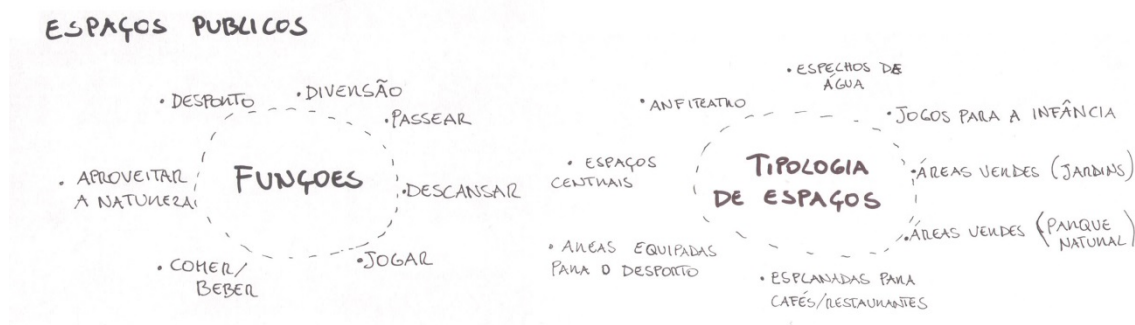 ESPAÇOS PUBLICOS
FUNÇOES
• DESPORTO
• DIVERSÃO
• PASSEAR
• DESCANSAR
• JOGAR
• COMER/
BEBER
• APROVEITAR
A NATUREZA
TIPOLOGIA
DE ESPAÇOS
• ANFITEATRO
• ESPECHOS DE
ÁGUA
• JOGOS PARA A INFÂNCIA
• ÁREAS VERDES (JARDINS)
• ÁREAS VERDES (PARQUE
NATURAL)
• ESPLANADAS PARA
CAFÉS/RESTAURANTES
• AREAS EQUIPADAS
PARA O DESPORTO
• ESPAÇOS
CENTRAIS